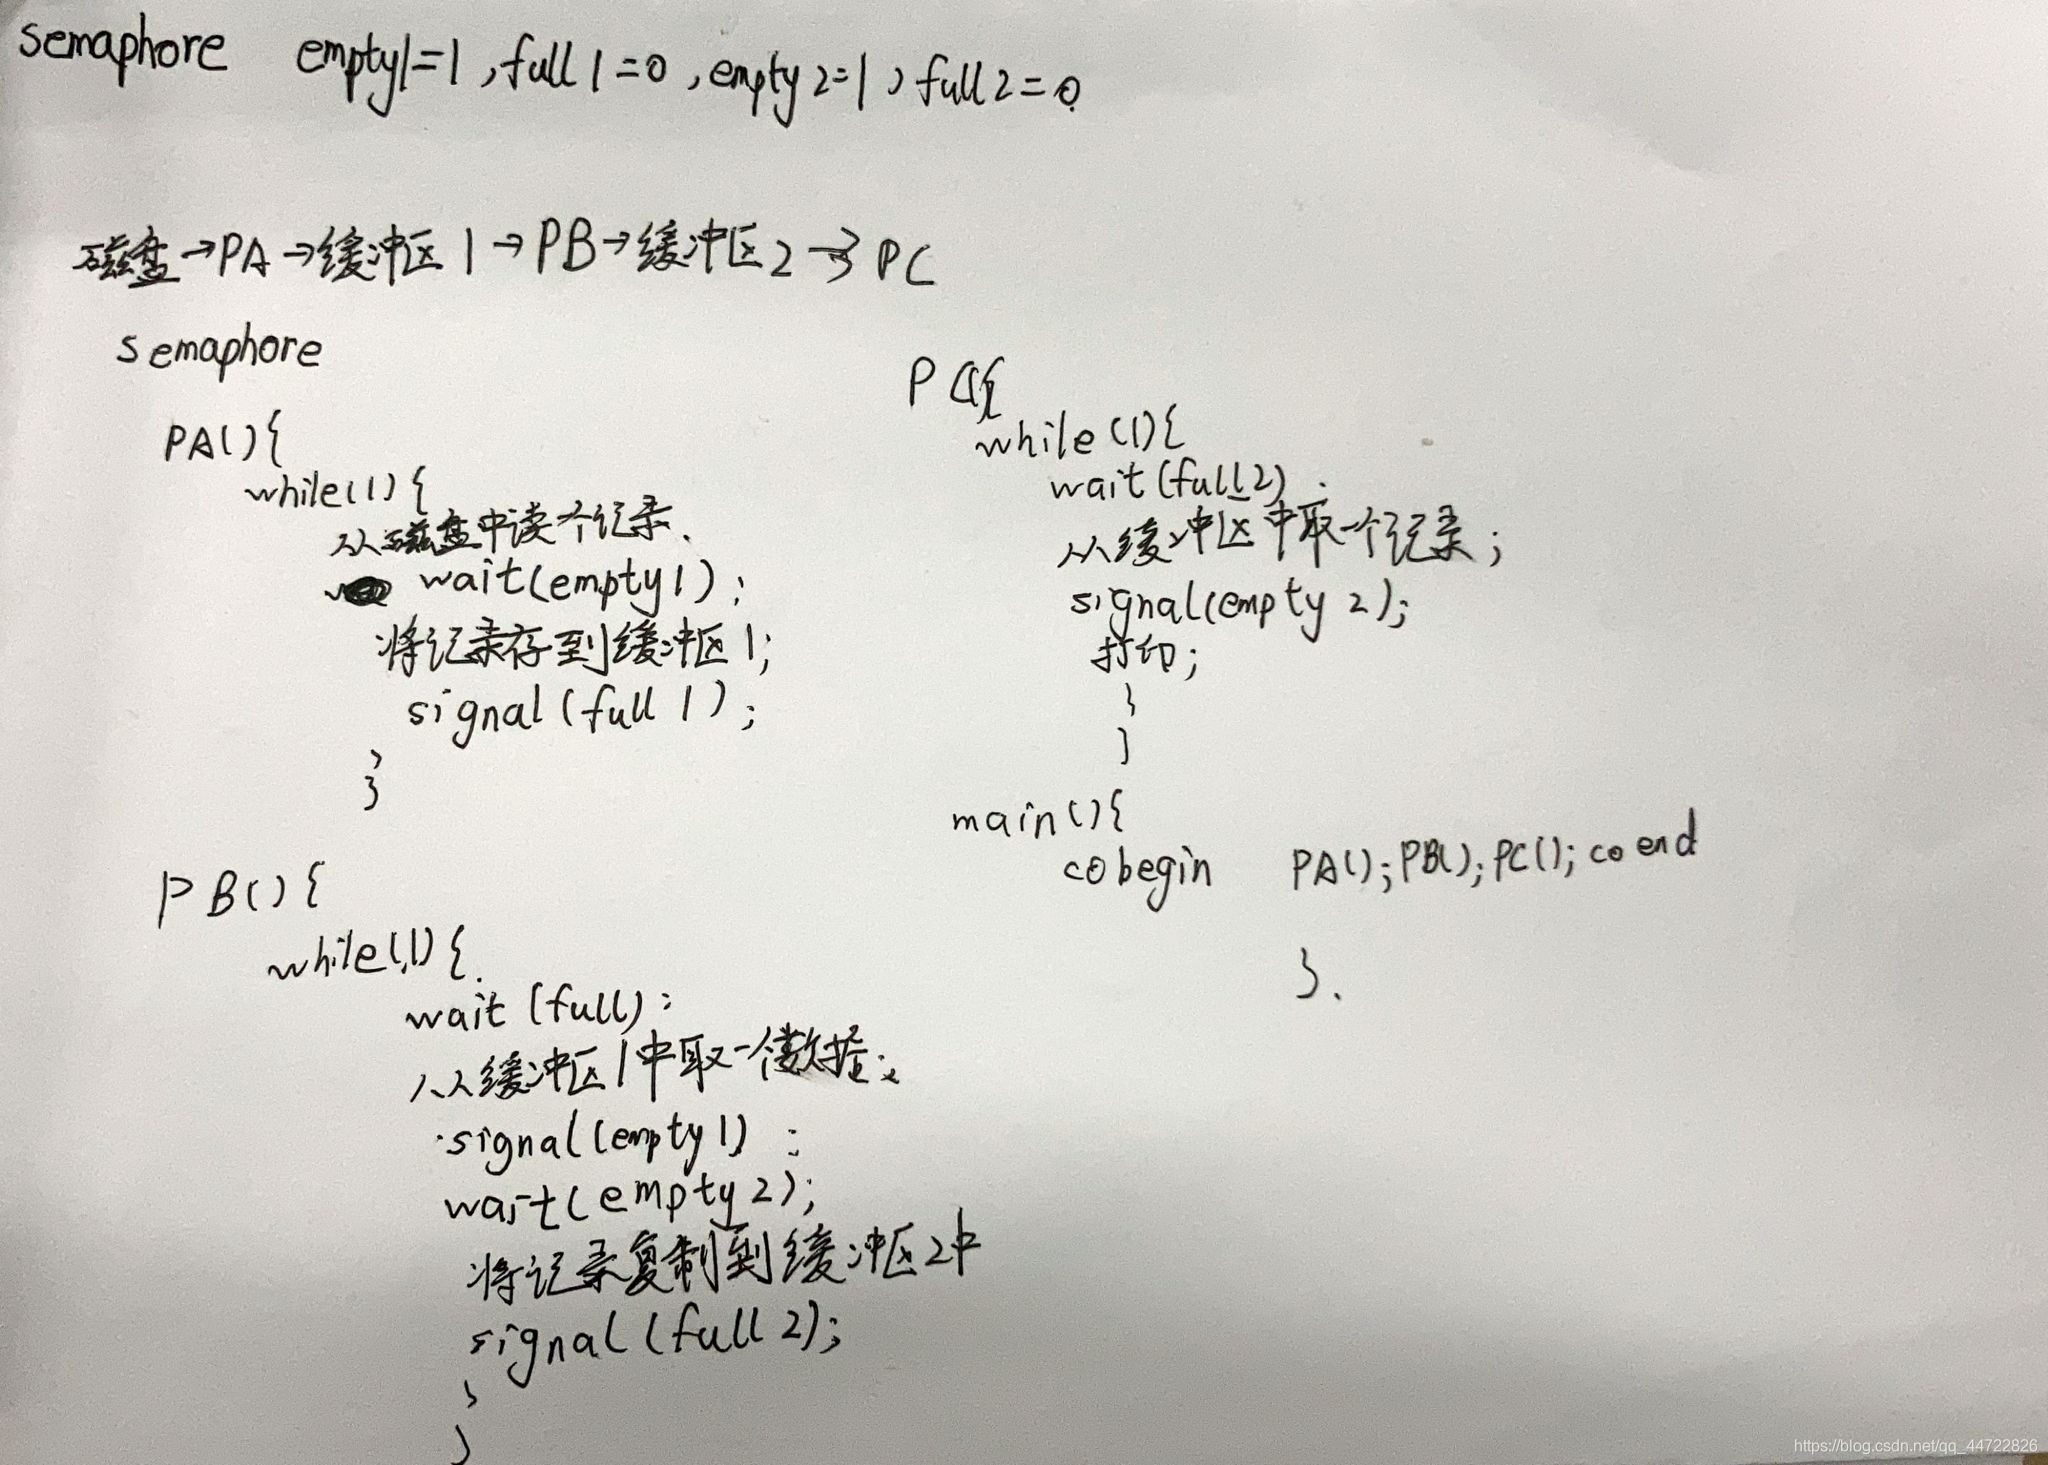 semaphore empty1=1,full1=0,empty2=1,full2=0
磁盘→PA→缓冲区1→PB→缓冲区2→PC
semaphore
PA(){
while(1){
从磁盘中读个记录、
wait(empty1);
将记录存到缓冲区1;
signal(full1);
}
}
PB(){
while(1){
wait(full);
从缓冲区1中取一个数据;
signal(empty1);
wait(empty2);
将记录复制到缓冲区2中
signal(full2);
}
}
PC{
while(1){
wait(full2).
从缓冲区中取一个记录;
signal(empty2);
打印;
}
}
main(){
cobegin PA();PB();PC();coend
}.
https://blog.csdn.net/qq_44722826